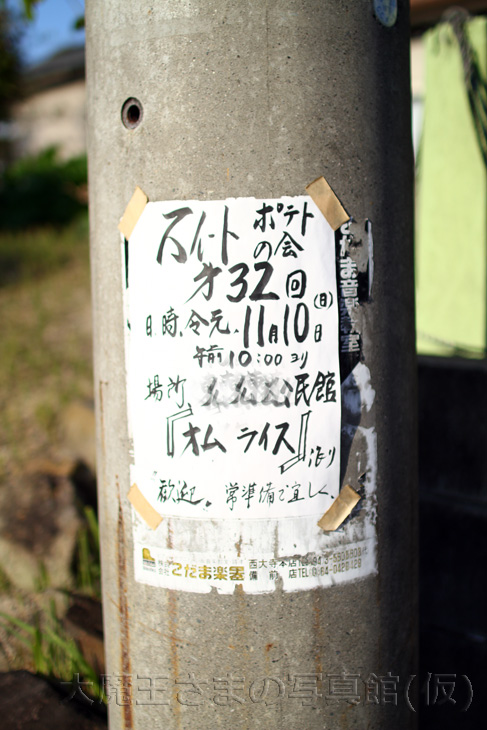 スイートポテトの会
才32回
日時、令元、11月10日(日)
午前10:00より
場所、公民館
『オムライス』
歓迎。常準備で宜しく、
だま音楽教室
株式会社 こだま楽器 西大寺本店TEL
備前店TEL
大魔王さまの写真館(仮)